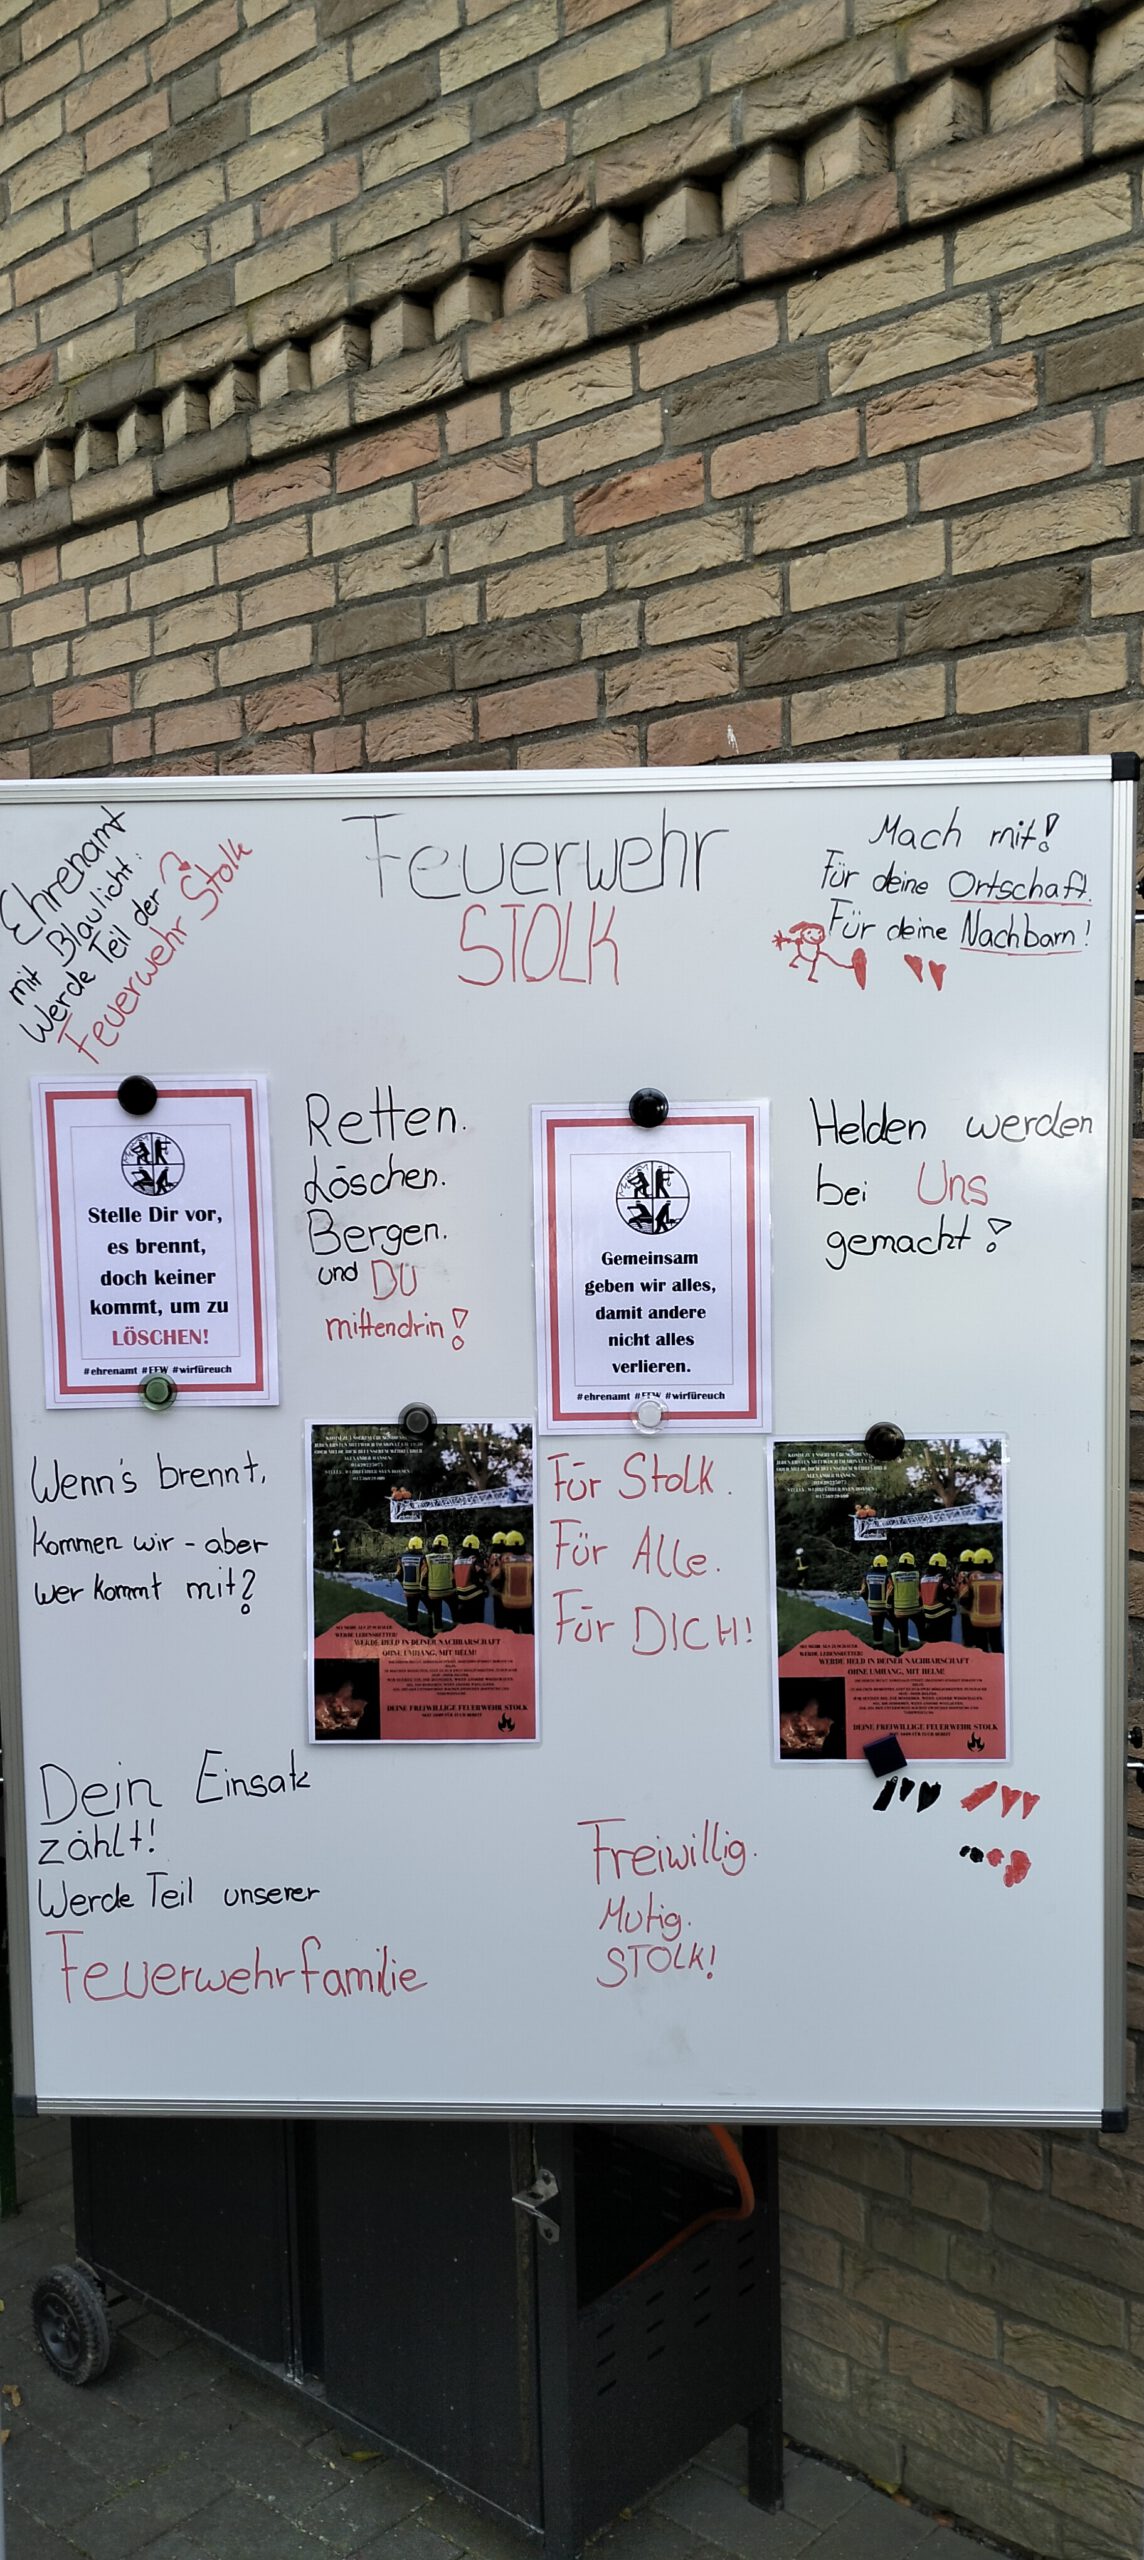 Ehrenamt
mit Blaulicht:
Werde Teil der
Feuerwehr Stolk
Feuerwehr
STOLK
Mach mit!
Für deine Ortschaft.
Für deine Nachbarn!
Stelle Dir vor,
es brennt,
doch keiner
kommt, um zu
LÖSCHEN!
#ehrenamt #FFW #wirfüreuch
Retten.
Löschen.
Bergen.
und DU
mittendrin!
Gemeinsam
geben wir alles,
damit andere
nicht alles
verlieren.
#ehrenamt #FFW #wirfüreuch
Helden werden
bei Uns
gemacht!
Wenn's brennt,
Kommen wir - aber
wer kommt mit?
SEI MEHR ALS ZUSCHAUER
WERDE LEBENSRETTER!
WERDE HELD IN DEINER NACHBARSCHAFT
OHNE UMHANG, MIT HELM!
DEINE FREIWILLIGE FEUERWEHR STOLK
Für Stolk.
Für Alle.
Für DICH!
SEI MEHR ALS ZUSCHAUER
WERDE LEBENSRETTER!
WERDE HELD IN DEINER NACHBARSCHAFT
OHNE UMHANG, MIT HELM!
DEINE FREIWILLIGE FEUERWEHR STOLK
Dein Einsatz
zählt!
Werde Teil unserer
Feuerwehrfamilie
Freiwillig.
Mutig.
STOLK!